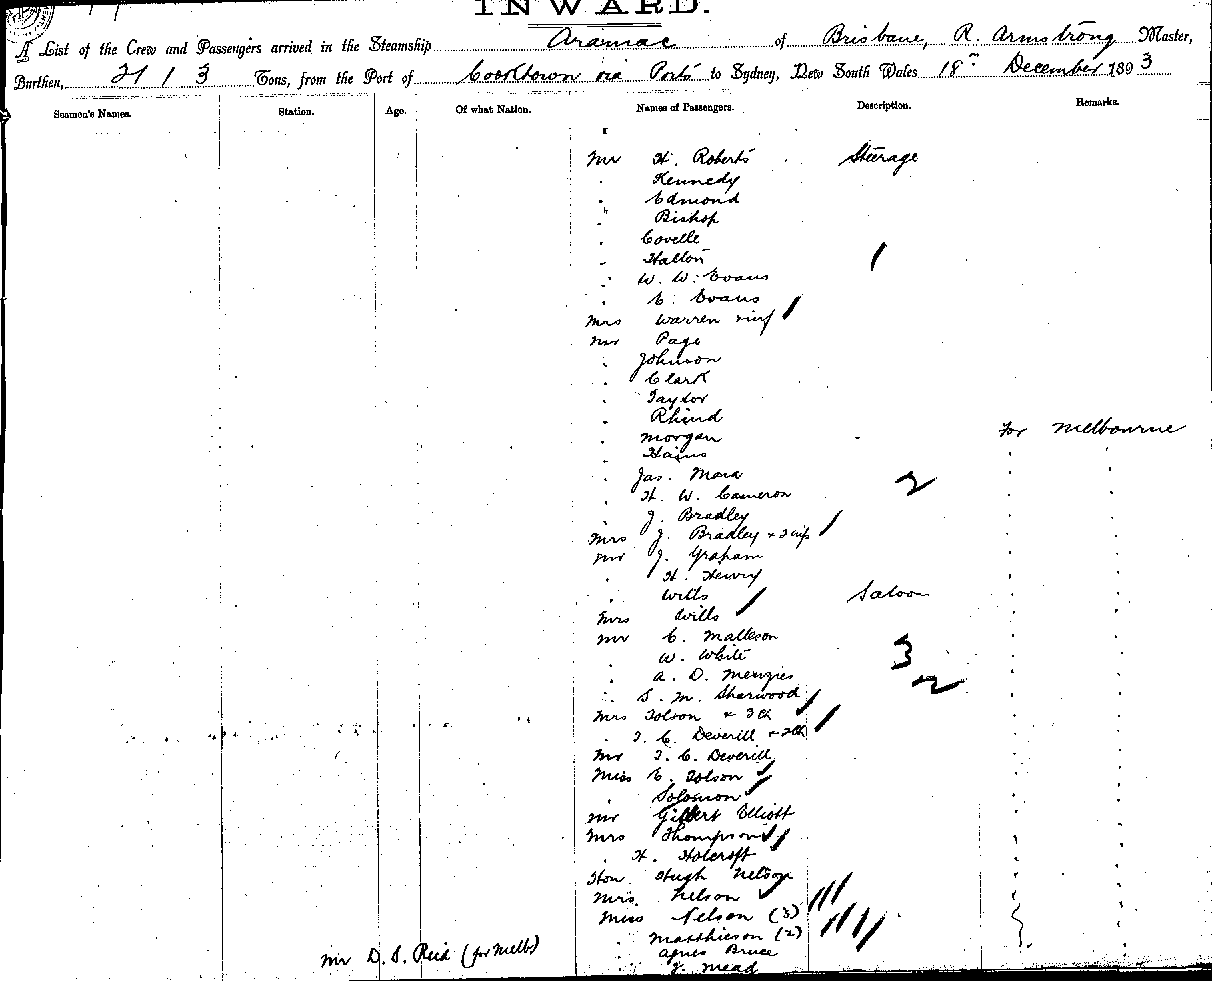 INWARD.
A List of the Crew and Passengers arrived in the Steamship Aramac of Brisbane, R. Armstrong Master,
Burthen, 2113 Tons, from the Port of Cooktown via Ports to Sydney, New South Wales 18th December 1893
Seamen's Names. Station. Age. Of what Nation. Names of Passengers. Description. Remarks.
Mr H. Roberts Steerage
Kennedy
Edmond
Bishop
Covelle
Halton
W. W. Evans
E. Evans
Mrs Warren & inf
Mr Page
Johnson
Clark
Taylor
Rhind
Morgan for Melbourne
Hains
Jas. Mara
H. W. Cameron 2
J. Bradley
Mrs J. Bradley + 2 inf
Mr J. Graham
H. Henry
Wills Saloon
Mrs Wills
Mr C. Matteson
W. White 3
A. D. Menzies 2
S. M. Sherwood
Mrs Tolson + 3 ch
T. C. Deverill + 2 ch
Mr T. C. Deverill
Miss E. Tolson
Solomon
Mr Gilbert Elliott
Mrs Thompson
H. Holcroft
Hon Hugh Nelson
Mrs. Nelson
Miss Nelson (3)
Matthieson (2)
Mr D. S. Reid (for Melb)
Agnes Bruce
J. Mead